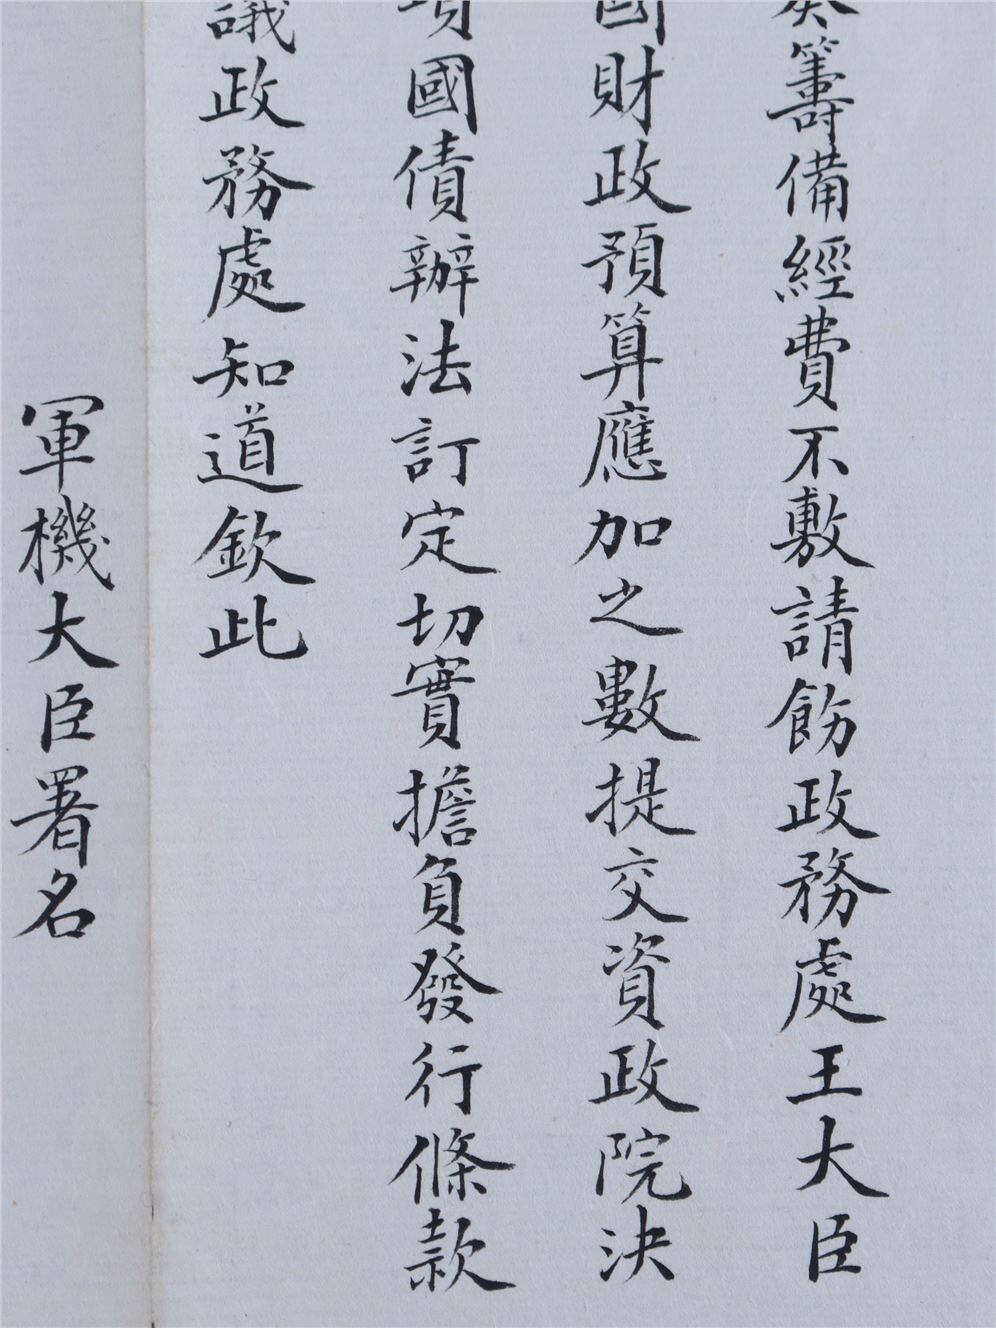 籌備經費不敷請飭政務處王大臣
國財政預算應加之數提交資政院決
國債辦法訂定切實擔負發行條款
議政務處知道欽此
軍機大臣署名